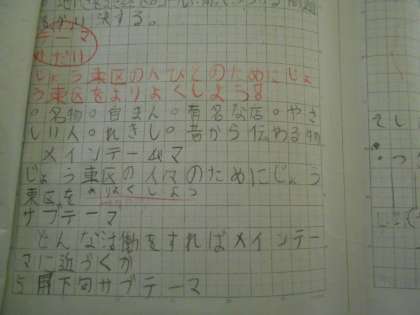 テーマ
しょう東区の人びとのためにじょ
う東区をよりよくしよう
○名物○自まん○有名な店○やさ
しい人○れきし○昔から伝わる物
メインテーマ
じょう東区の人々のためにじょう
東区をよりよくしよう
サブテーマ
どんな活働をすればメインテー
マに近づくか
5月下旬サブテーマ